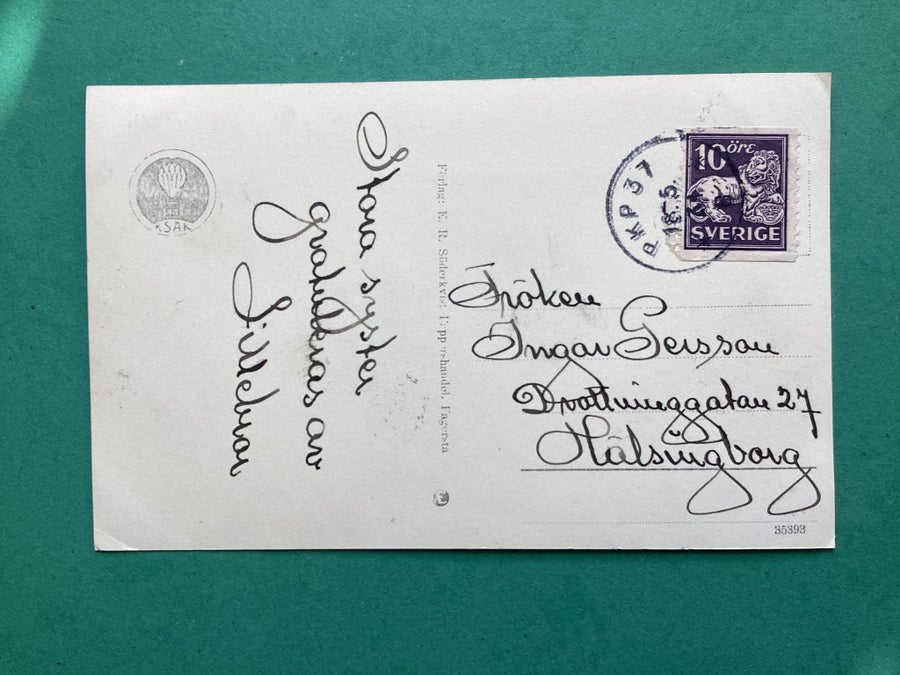 Stora syster
gratuleras av
Lillebror
KSAK
Förlag: E. R. Söderkvist Pappershandel, Fagersta
PKP 37
18.5.
10 öre
SVERIGE
Fröken
Ingar Persson
Drottninggatan 27
Hälsingborg
35393